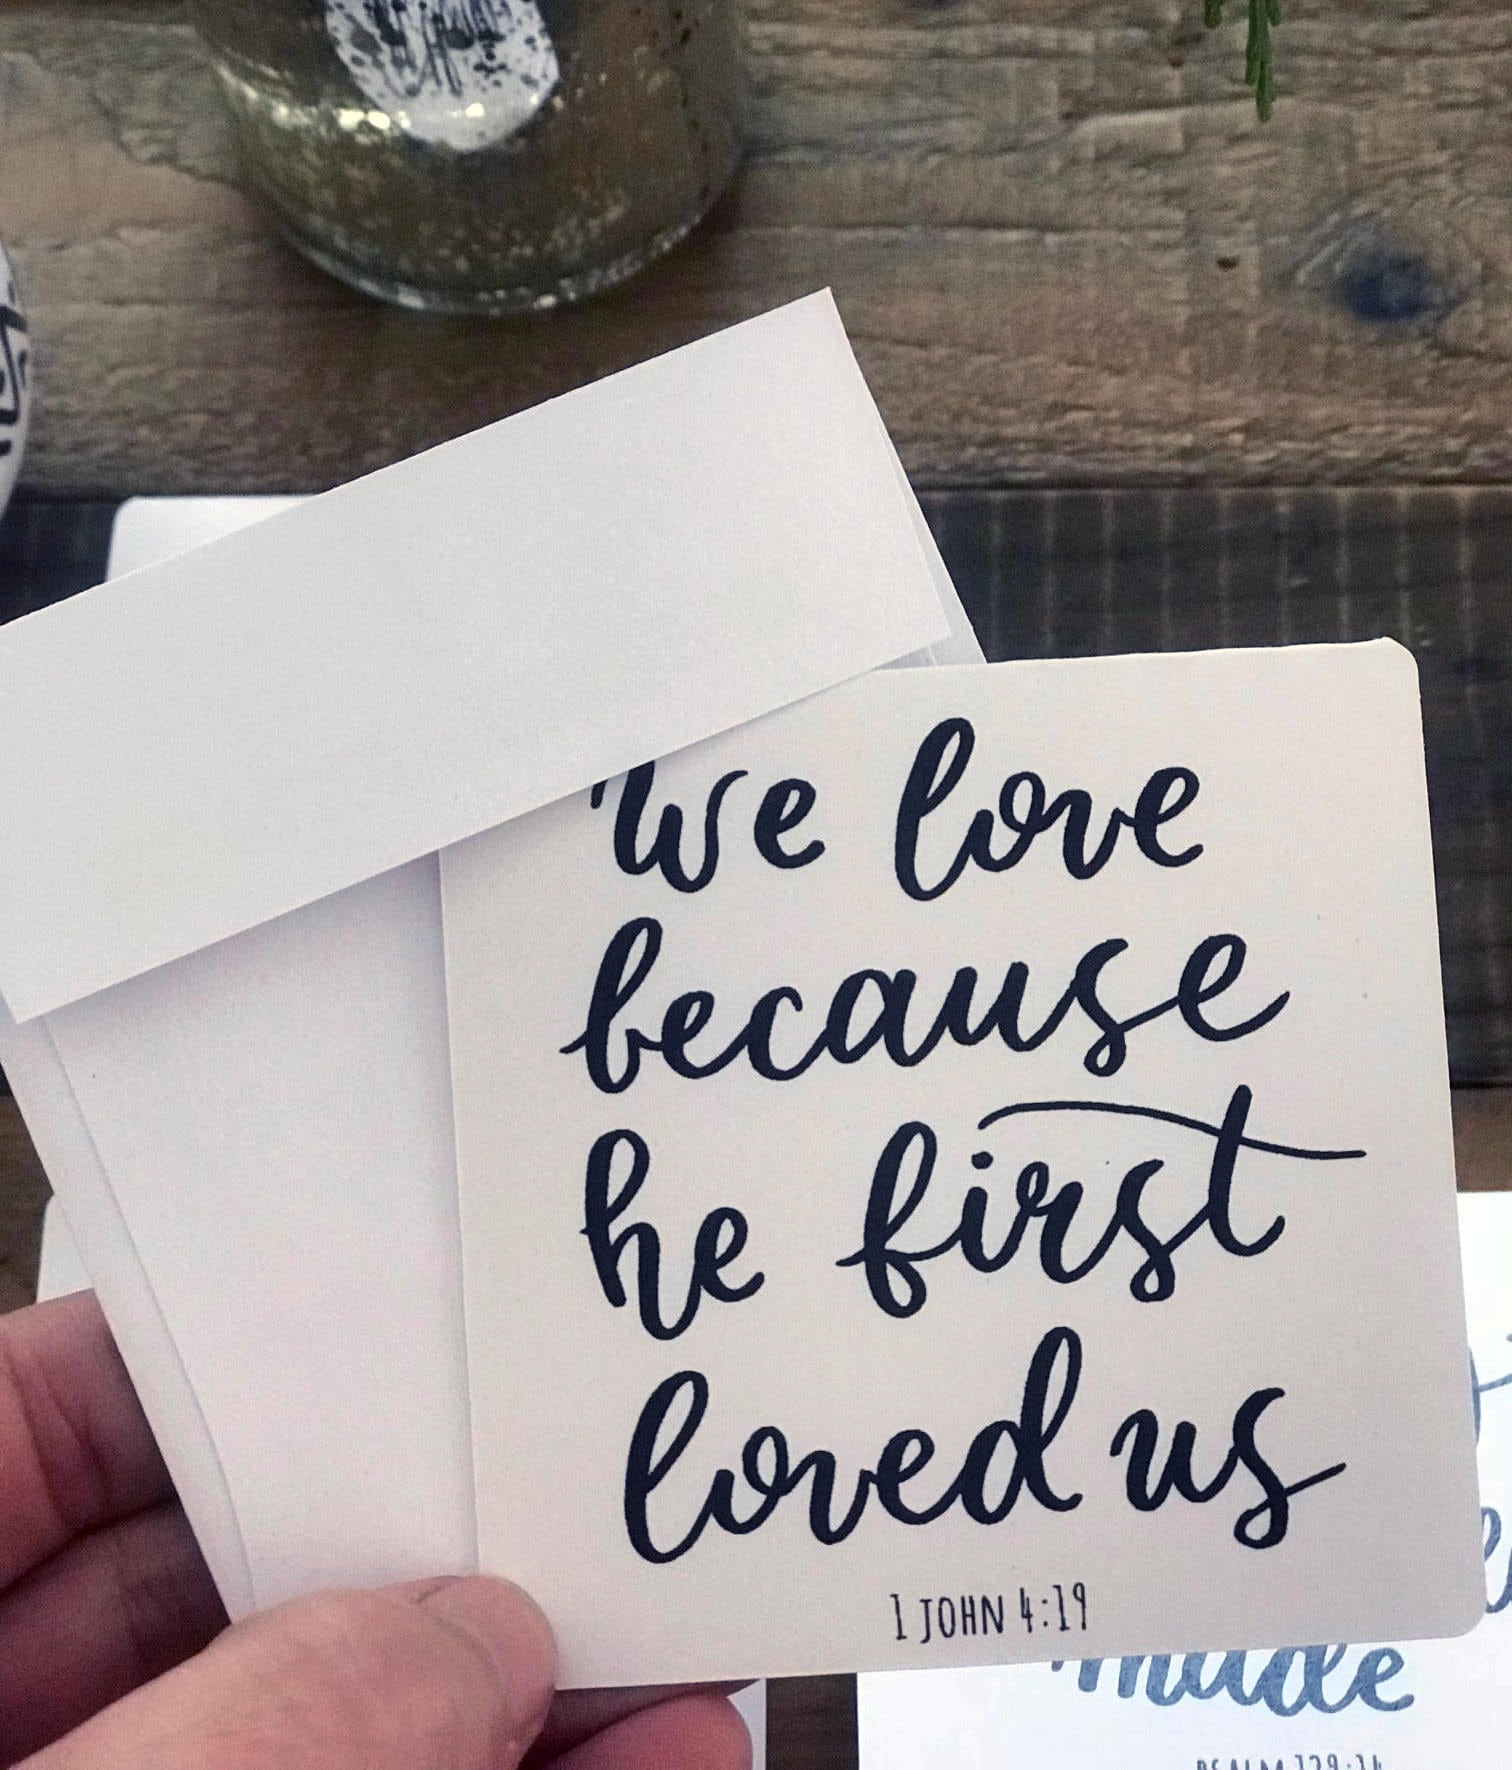 We love
because
he first
loved us
1 JOHN 4:19
made